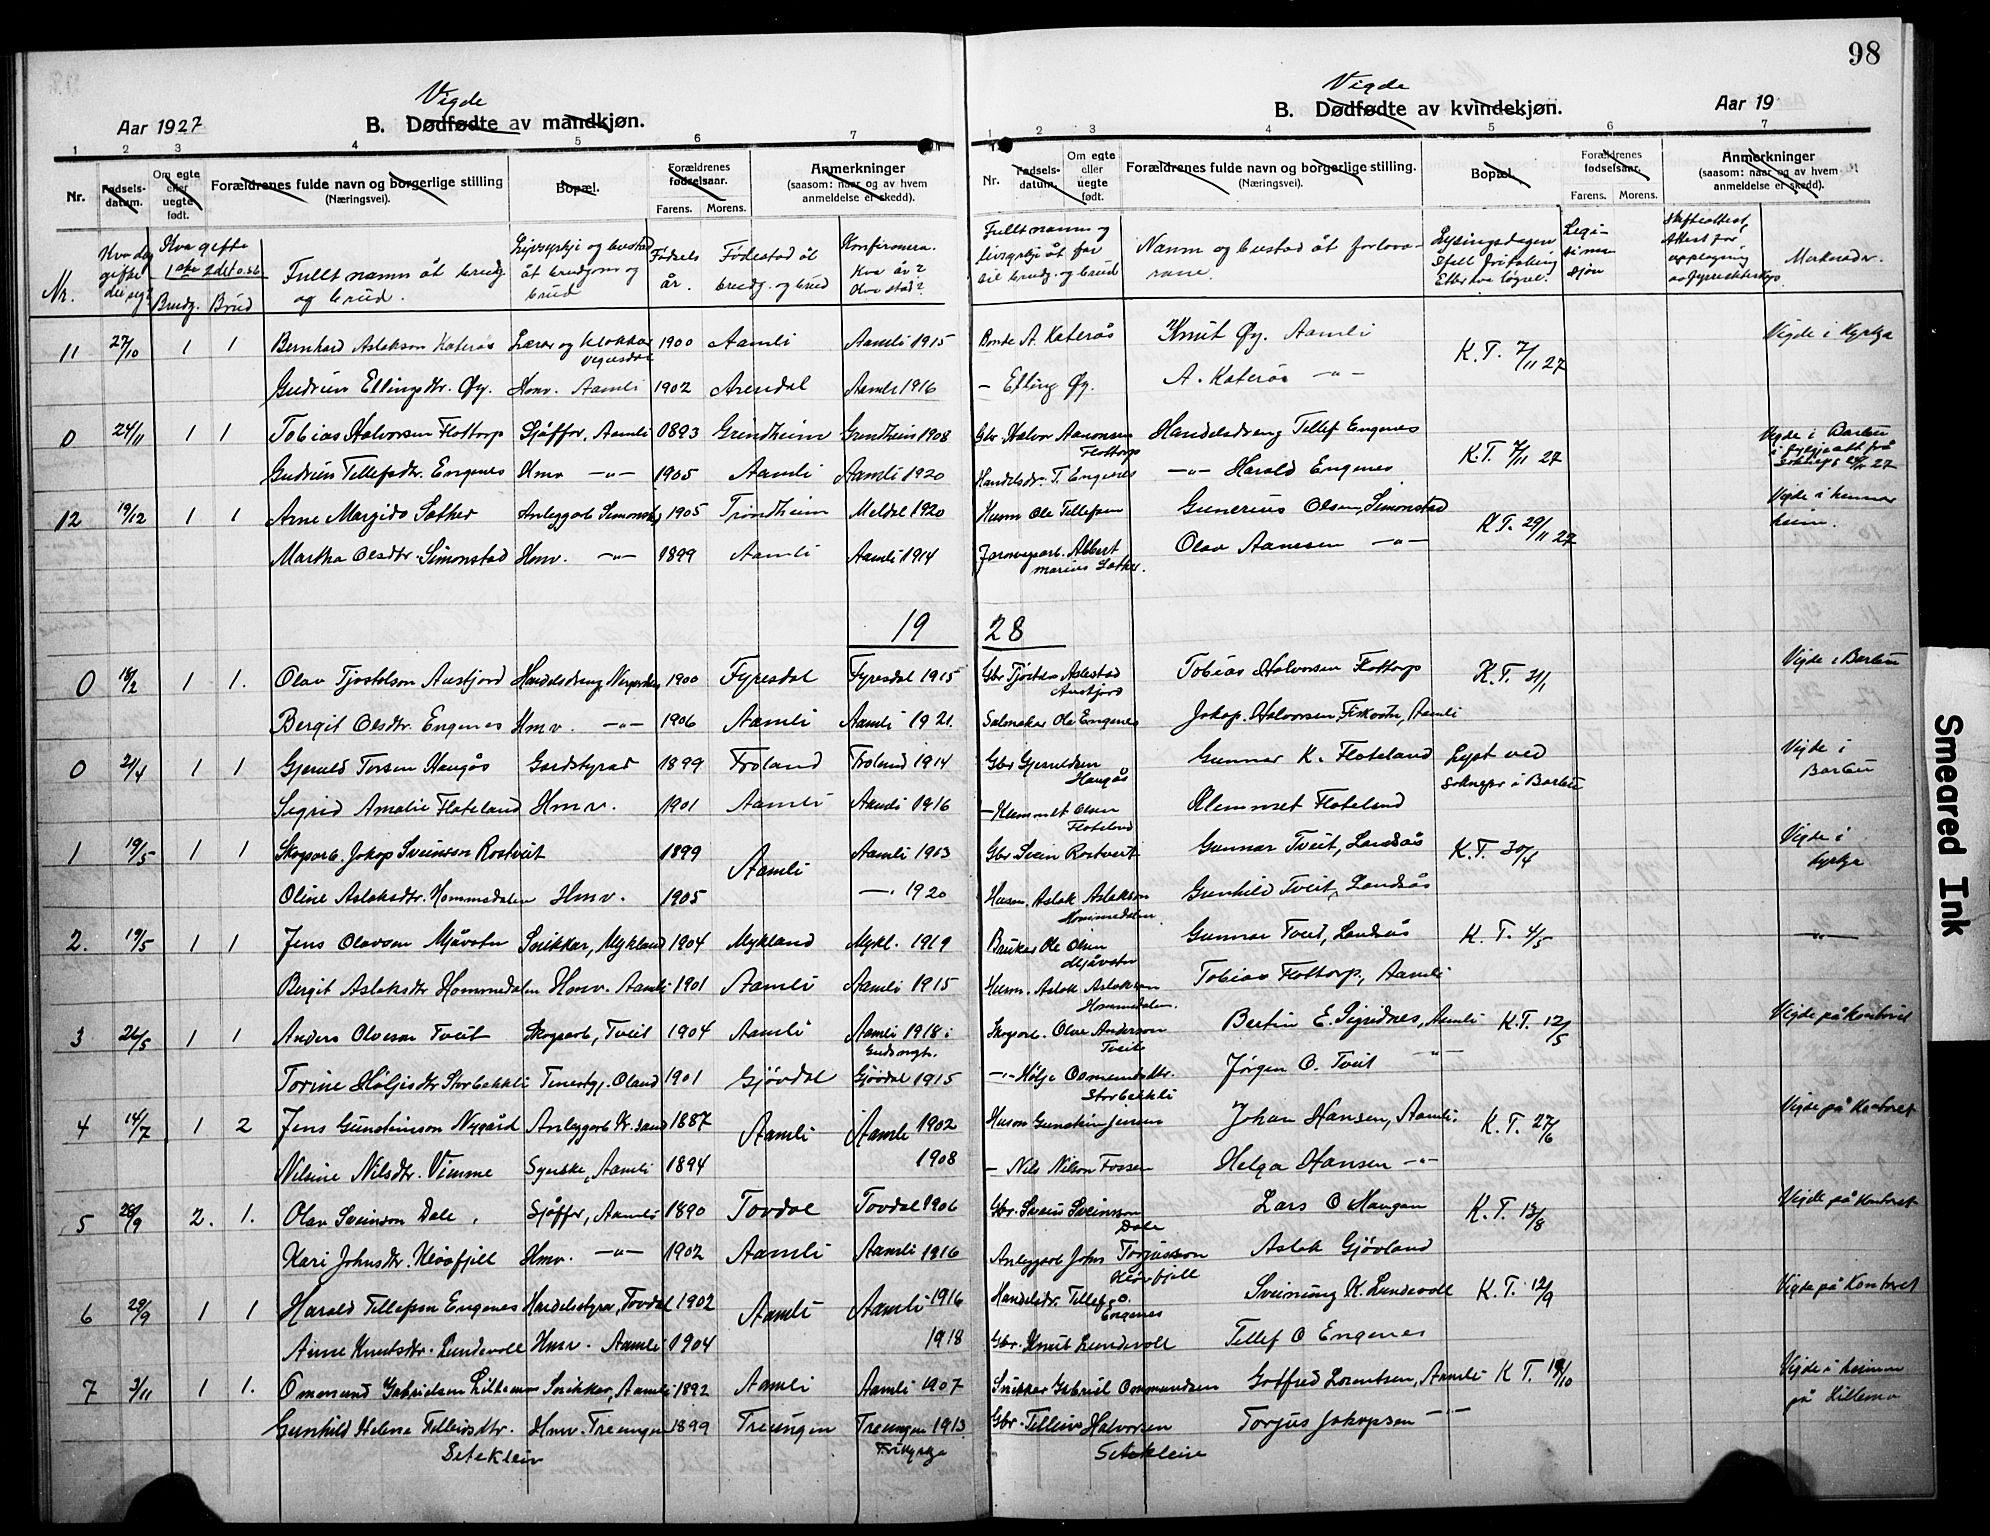 98
Vigde
Aar 1927 B. Dødfødte av mandkjøn.
1 2 3 4 5 6 7
Nr. Fødsels-datum. Om egte eller uegte født. Forældrenes fulde navn og borgerlige stilling (Næringsvei). Bopæl. Forældrenes fødselsaar. Farens. Morens. Anmerkninger (saasom: naar og av hvem anmeldelse er skedd).
Vigde
B. Dødfødte av kvindekjøn. Aar 19
1 2 3 4 5 6 7
Nr. Fødsels-datum. Om egte eller uegte født. Forældrenes fulde navn og borgerlige stilling. (Næringsvei). Bopæl. Forældrenes fødselsaar. Farens. Morens. Anmerkninger (saasom: naar og av hvem anmeldelse er skedd).
Nr. Kva dag gifte Kva gifte Brudg. Brud Fullt namn åt brudg og brud. Livsyrkje og bustad åt brudgom og brud Fødsels år. Fødestad åt brudg. og brud Konfirmera. Kva år? Kva stad? Fullt namn og livsyrkje åt far til brudg. og brud Namn og bustad åt forlovarane. Lysingsdagen Merknader.
11 27/10 1 1 Bernhard Aslakson Katerås Lærar og klokkar 1900 Aamli Aamli 1915 Bonde A. Katerås Knut Øy. Aamli K.T. 7/11 27 Vigde i kyrkja
Gudrun Ellingsdtr. Øy. Hmv. Aamli 1902 Arendal Aamli 1916 – Elling Øy. A. Katerås –"–
0 24/11 1 1 Tobias Halvorsen Flottorp Sjåffør, Aamli 1893 Grindheim Grindheim 1908 Gbr Halvor Aanonsen Flottorp Handelsdreng Tellef Engenes K.T. 7/11 27 Vigde i Barbu
Gudrun Tellefsdtr. Engenes Hmv –"– 1905 Aamli Aamli 1920 Handelsdr. T. Engenes –"– Harald Engenes
12 19/12 1 1 Arne Margido Sæther Anleggarb Simonstad 1905 Trondheim Meldal 1920 Husm Ole Tellefsen Gunerius Olsen, Simonstad K.T. 29/11 27 Vigde i heimen
Martha Olsdtr. Simonstad Hmv. –"– 1899 Aamli Aamli 1914 Jarnvegsarb. Albert Marius Sæther. Olav Aanesen –"–
19 28
0 18/2 1 1. Olav Tjostolson Austjord Handelsdreng 1900 Fyresdal Fyresdal 1915 Gbr Austjord Tobias Halvorsen Flottorp K.T. 31/1 Vigde i Barbu
Bergit Olsdtr. Engenes Hmv. –"– 1906 Aamli Aamli 1921. Salmakar Ole Engenes Jakop. Halvorsen Fiskvatn, Aamli
0 21/4 1 1 Gjeruld Torsen Haugås Gardstyrar 1899 Froland Froland 1914 Gbr Gjeruldsen Haugås Gunnar K. Floteland Lyst ved soknepr i Barbu Vigde i Barbu
Sigrid Amalie Floteland Hmv. 1901 Aamli Aamli 1916 – Klemmet Olsen Floteland Klemmet Floteland
1 19/5 1 1 Skogsarb. Jakop Sveinson Rostveit 1899 Aamli Aamli 1913 Gbr Svein Rostveit Gunnar Tveit, Landsås K.T. 30/4 Vigde i kyrkja
Oline Aslaksdtr. Hommedalen Hmv. 1905 –"– 1920 Husm. Aslak Aslakson Hommedalen Gunhild Tveit, Landsås
2. 19/5 1 1 Jens Olavsen Mjåvatn Snikkar, Mykland 1904 Mykland Mykl. 1919 Brukar Ole Olsen Mjåvatn Gunnar Tveit, Landsås K.T. 4/5 –"–
Bergit Aslaksdtr Hommedalen Hmv. Aamli 1901 Aamli Aamli 1915 Husm. Aslak Aslakson Hommedalen. Tobias Flottorp, Aamli
3 26/5 1 1 Anders Olveson Tveit Skogsarb, Tveit 1904 Aamli Aamli 1918 Skogsarb. Olve Anderson Tveit Bertin E. Sigridnes, Aamli K.T. 12/5 Vigde på kontoret
Torine Høljesdtr Storbekkli Tenestgj. Oland 1901 Gjøvdal Gjøvdal 1915 –"– Hølje Storbekkli Jørgen O. Tveit –"–
4 14/7 1 2 Jens Gunsteinson Nygård Anleggarb Kr.sand 1887 Aamli Aamli 1902 Husm Gunstein Jensen Johan Hansen, Aamli. K.T. 27/6 Vigde på kontoret
Nilsine Nilsdtr. Vimme Syerske, Aamli 1894 1908 – Nils Nilson Fossen Helga Hansen –"–
5 28/9 2. 1. Olav Sveinson Dale, Sjåffør, Aamli 1890 Tovdal Tovdal 1906 Gbr. Svein Sveinsson Dale Lars O Haugan K.T. 13/8 Vigde på kontoret
Kari Johnsdtr. Kleivfjell Hmv. –"– 1902 Aamli Aamli 1916 Anleggarb John Torjusson Kleivfjell Aslak Gjøvland
6 29/9 1 1 Harald Tellefsen Engenes Handelsstyrar, Tovdal 1902 Aamli Aamli 1916 Handelsdr. Tellef O. Engenes Sveinung K. Lundevoll K.T. 12/9 Vigde på kontoret
Anne Knutsdtr. Lundevoll Hmv. Aamli 1904 1918 Gbr. Knut Lundevoll Tellef O Engenes
7 3/11 1 1. Ommund Gabrielsen Snikkar, Aamli 1892 Aamli Aamli 1907 Snikkar Gabriel Ommundsen Gotfred Lorentsen, Aamli K.T. 19/10 Vigde i heimen på
Gunhild Helene Telleivsdtr. Setekleiv Hmv. Treungen 1899 Treungen Treungen 1913. Frikyrkja Gbr. Telleiv Halvorsen Setekleiv Torjus Jakopsen –"–
Smeared Ink